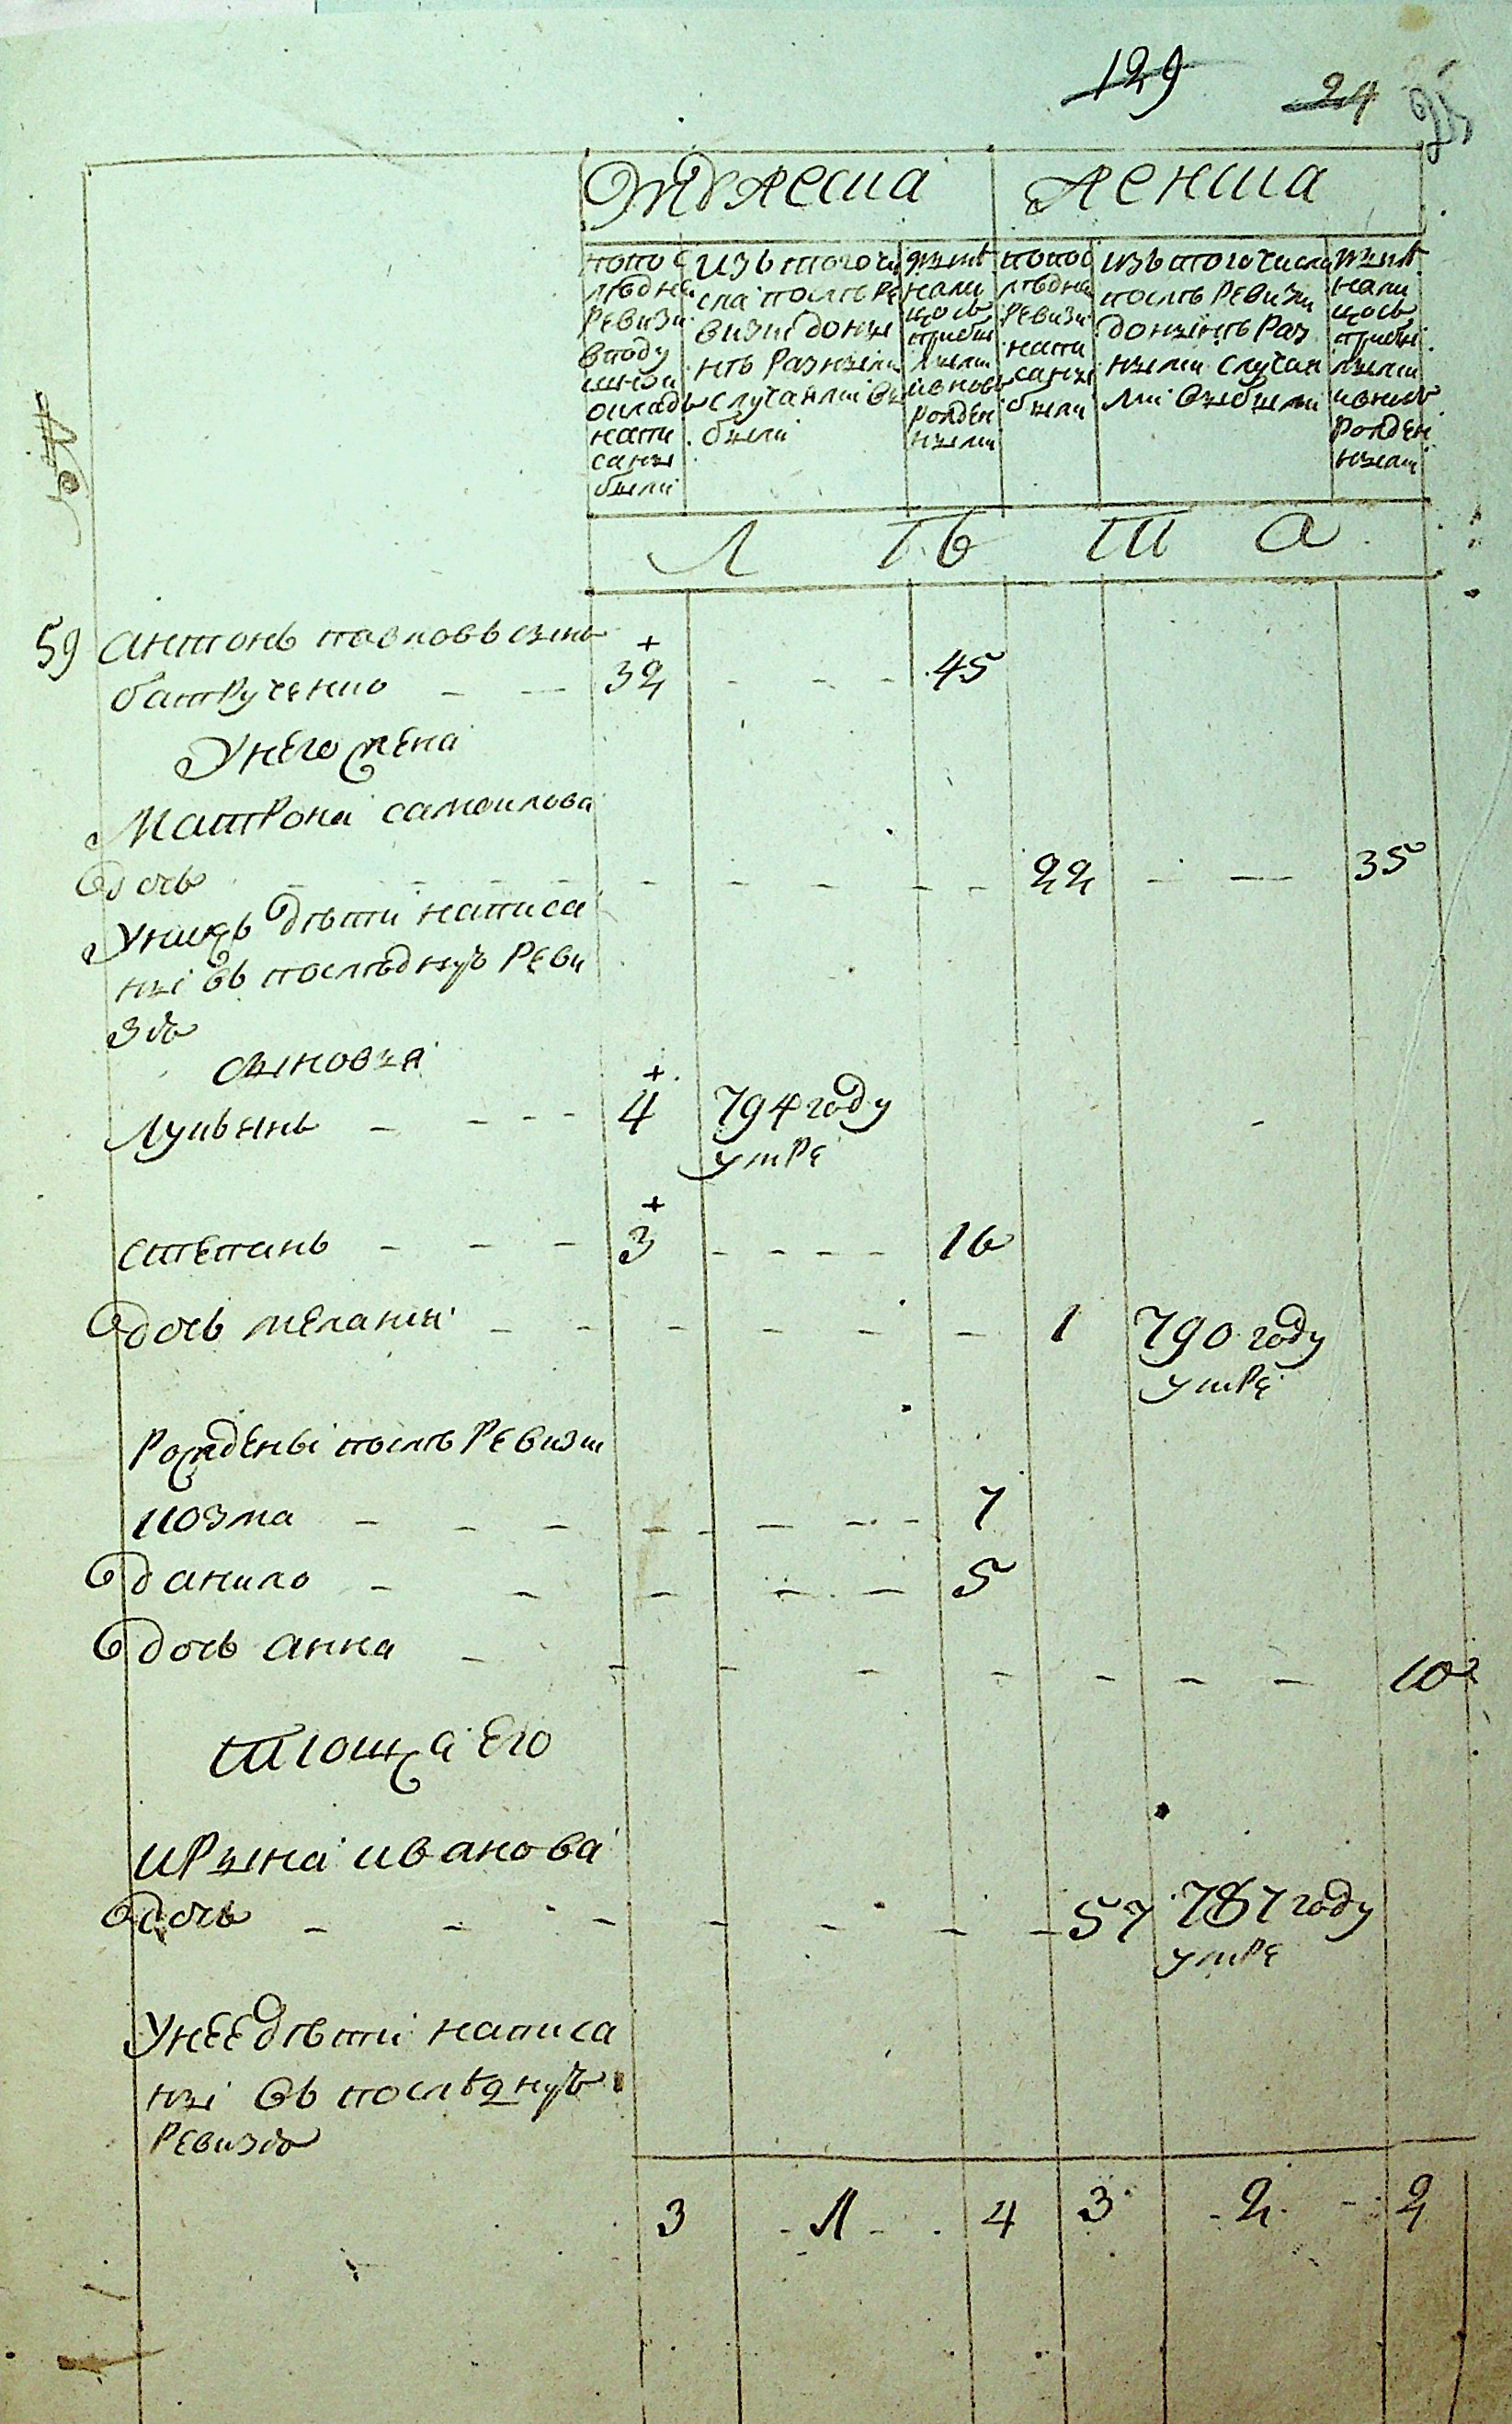 129 24 25
Мужеска женска
попос
лѣдне
ревизи
вподу
шной
окладъ
напи
саны
были
изъ тогочи
сла послѣ ре
визии доны
нѣ разными
случаями вы
были
нынѣ
нали
цось
прибы
лыми
ивновь
рожден
ными
попос
лѣдне
ревизи
напи
саны
были
изъ того числа
послѣ ревизи
донынѣ раз
ными случая
ми выбыли
нынѣ
нали
цось
прибы
лыми
ивновь
рожден
ными
Л ѣ т а
59 антонъ павловъ сынъ
батрученко 32 45
унего жена
Матрона самоилова
дочь 22 35
унихъ дѣти написа
ни въ послѣднуъ реви
зю
сыновья
Лукьянъ 4 794 году
умре
степанъ 3 16
дочь меланья 1 790 году
умре
рождены послѣ ревизи
козма 7
данило 5
дочь анна 10
тюща его
ирына иванова
дочь 57 787 году
умре
унее дѣти написа
ны въ послѣднуъ
ревизю
3 1 4 3 2 2